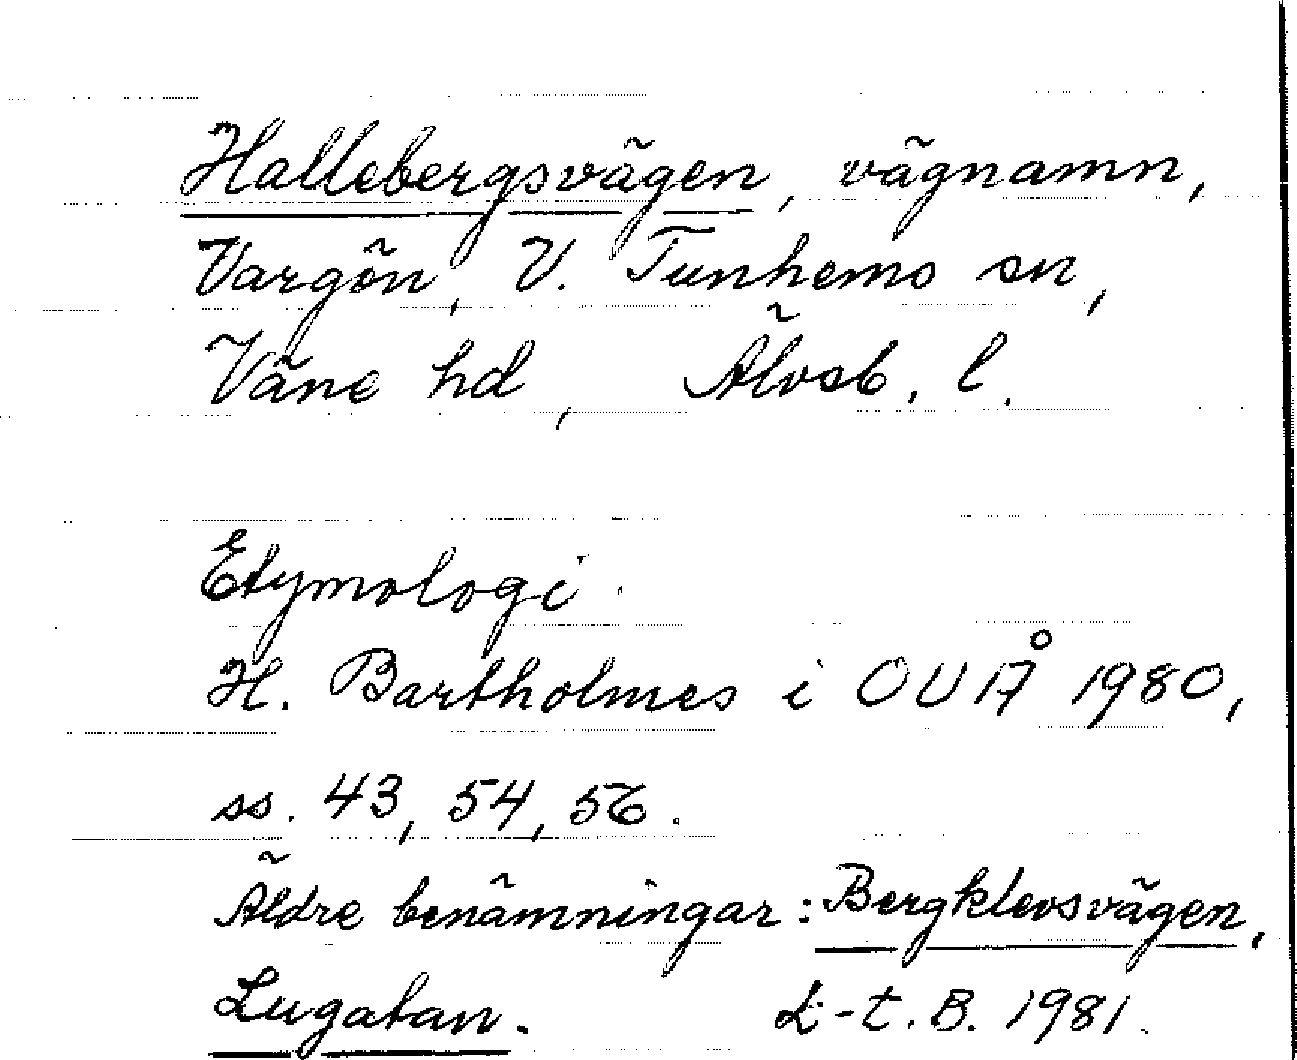 Hallebergsvägen, vägnamn,
Vargön, V. Tunhems sn,
Väne hd, Älvsb. l.
Etymologi.
H. Bartholmes i OUÅ 1980,
ss. 43, 54, 56.
Äldre benämningar: Bergklevsvägen,
Lugatan. L-t. B. 1981.